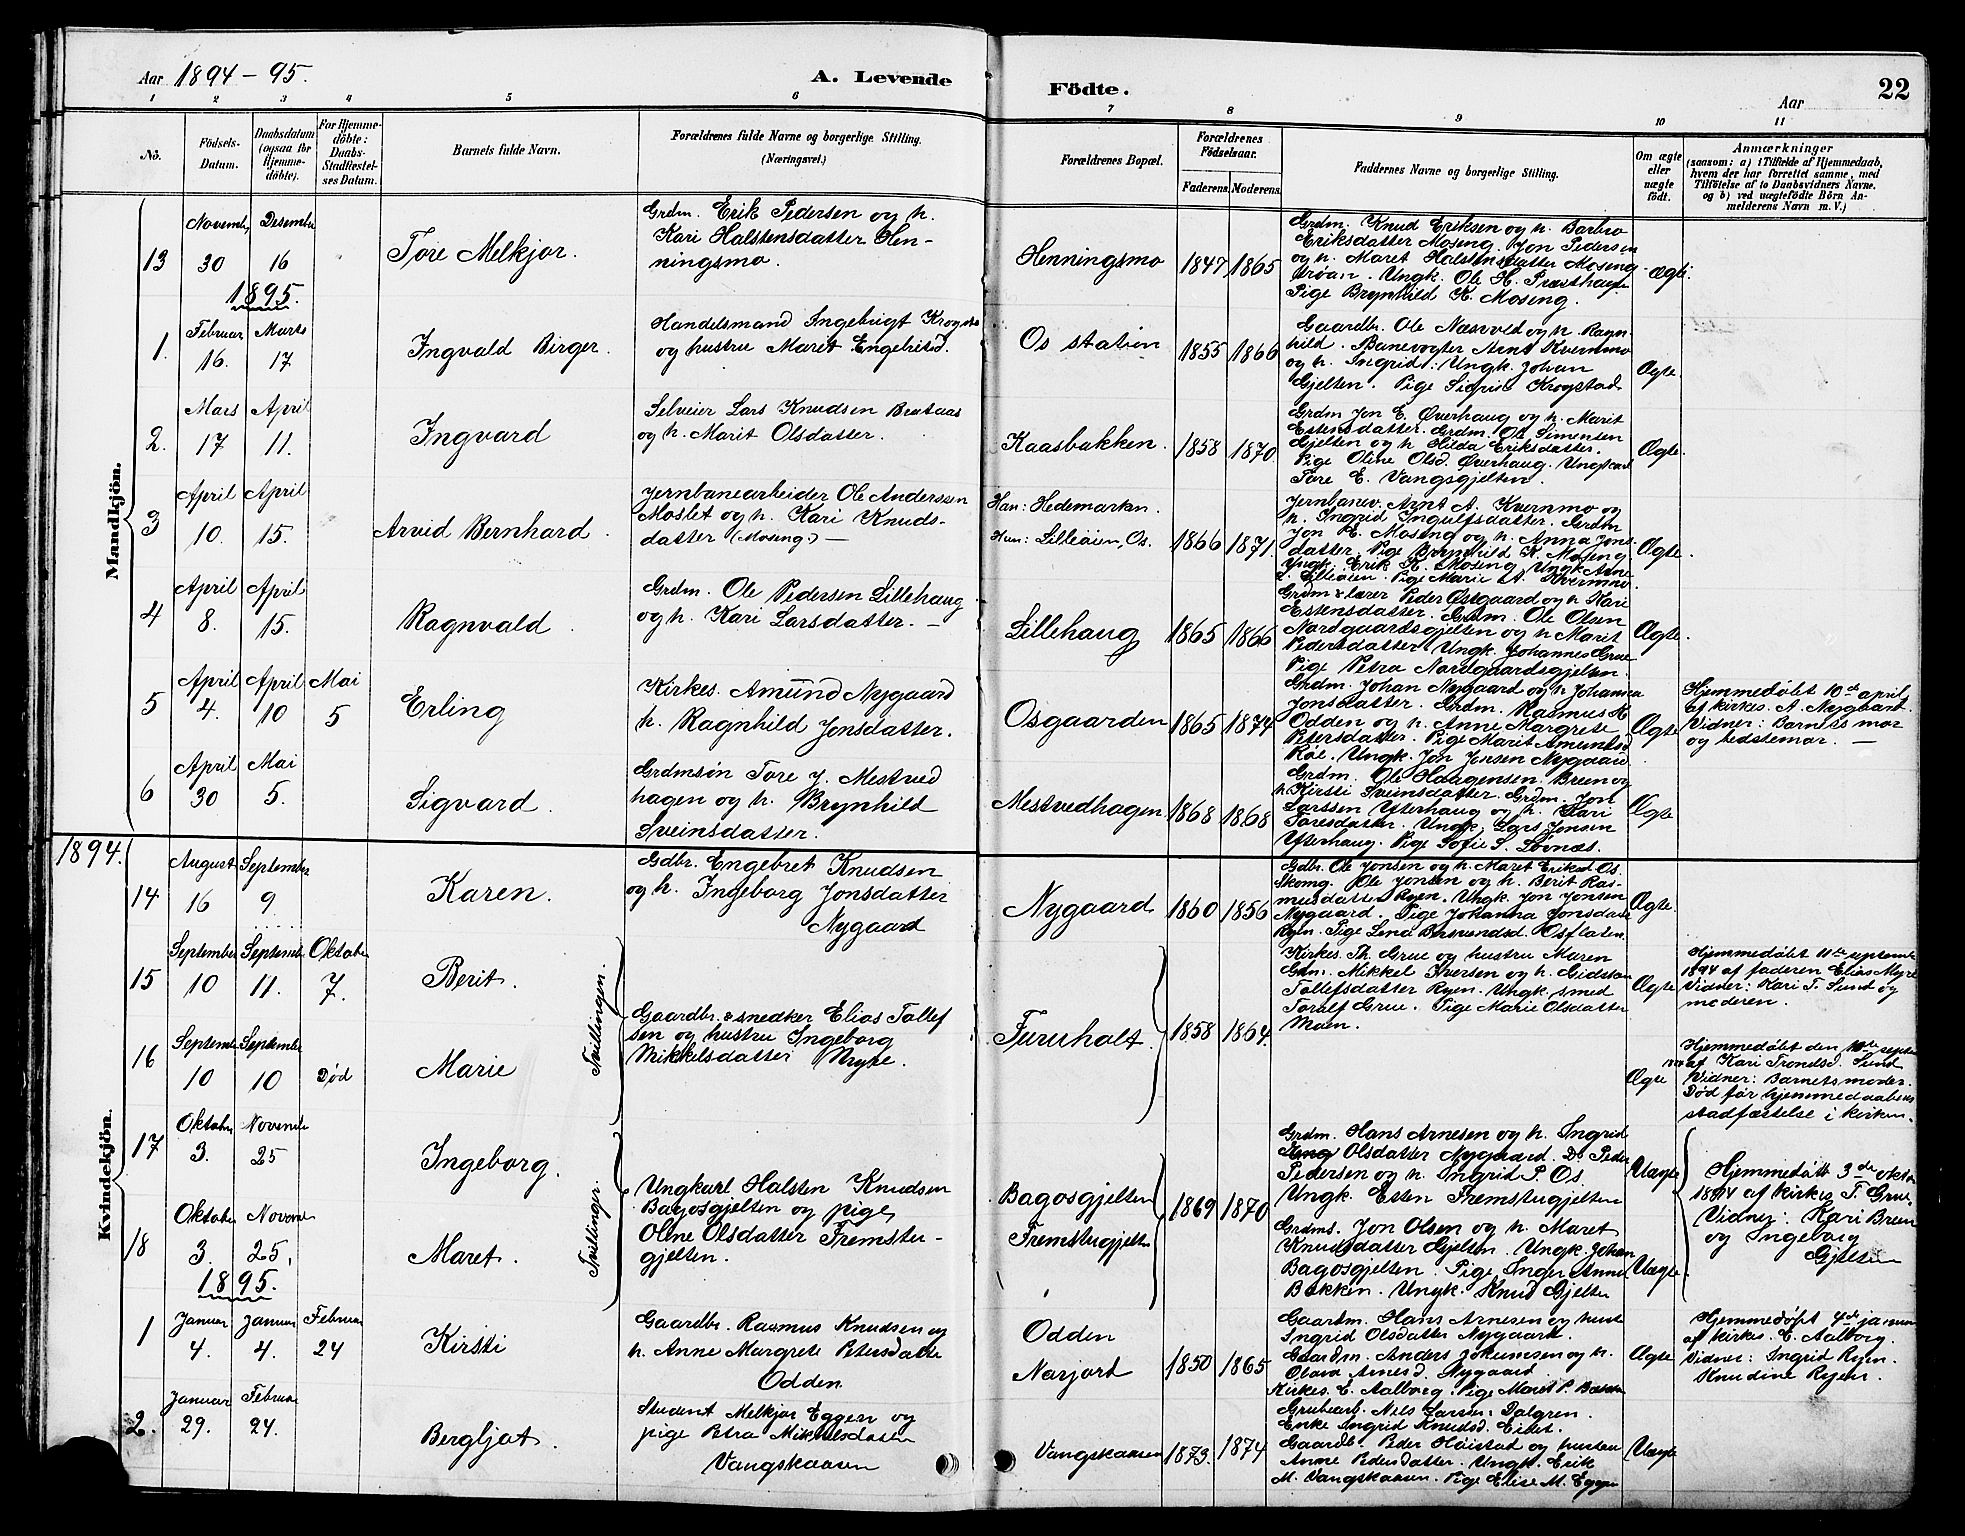 Aar 1894-95.
A. Levende
Födte.
Aar
22
1
2
3
4
5
6
7
8
9
10
11
No.
Födsels-
Datum.
Daabsdatum
(ogsaa for
Hjemme-
döbte).
For Hjemme-
döbte:
Daabs-
Stadfæstel-
ses Datum.
Barnets fulde Navn.
Forældrenes fulde Navne og borgerlige Stilling.
(Næringsvei.)
Forældrenes Bopæl.
Forældrenes
Födselsaar.
Faderens.
Moderens.
Faddernes Navne og borgerlige Stilling.
Om ægte
eller
uægte
født.
Anmærkninger
(saasom: a) i Tilfælde af Hjemmedaab,
hvem der har forrettet samme, med
Tilföielse af to Daabsvidners Navne.
og b) ved uægtefödte Börn An-
melderens Navn m. V.)
Mandkjön.
13
November
30
Desember
16
Tore Melkjor.
Grdm. Erik Pedersen og h.
Kari Halstensdatter Hen-
ningsmo.
Henningsmo
1847
1865
Grdm. Knud Eriksen og h. Barbro
Eriksdatter Moseng. Jon Pedersen
og h. Maret Halstensdatter Moseng
trøan. Ungk. Ole H. Præsthaug
Pige Brynhild K. Moseng.
Ægte.
1895.
1.
Februar
16.
Marts
17.
Ingvald Birger.
Handelsmand Ingebrigt Krogstad
og hustru Maret Engebritsd.
Os station
1855
1866
Gaardbr. Ole Næsvold og h. Ragn-
hild. Banevogter Arnt Kvernmo
og h. Ingrid: Ungk. Johan
Gjelten. Pige Sigrid Krogstad.
Ægte.
2.
Mars
17
April
11.
Ingvard
Selveier Lars Knudsen Brataas
og h. Marit Olsdatter.
Kaasbakken.
1858
1870
Grdm Jon E. Øverhaug og h. Marit
Estensdatter. Grdm. Ole Simensen
Gjelten og h. Hilda Eriksdatter.
Pige Oline Olsd. Øverhaug. Ungkarl
Tore E. Vangsgjelten.
Ægte.
3
April
10.
April
15.
Arvid Bernhard.
Jernbanearbeider Ole Anderssen
Moslet og h. Kari Knuds-
datter (Moseng.) —
Han: Hedemarken.
Hun: Lilleøien, Os.
1866
1871.
Jernbanev. Arnt A. Kvernmo og
h. Ingrid Ingulfsdatter. Grdm
Jon P. Moseng og h. Anna Jons-
datter, Pige Brynhild K. Moseng
Ungk. Erik K. Moseng Ungk. Arne
L. Lilleøien. Pige Marie A. Kvernmo.
Ægte.
4
April
8.
April
15.
Ragnvald.
Grdm. Ole Pedersen Lillehaug
og h. Kari Larsdatter. —
Lillehaug
1865
1866
Grdm & lærer Peder Østgaard og h. Kari
Estensdatter. Grdm. Ole Olsen
Nordgaardsgjelten og h. Marit
Pedersdatter. Ungk. Johannes Grue
Pige Petra Nordgaardsgjelten.
Ægte.
5
April
4.
April
10
Mai
5
Erling
Kirkes. Amund Nygaard
h. Ragnhild Jonsdatter.
Osgaarden
1865
1874
Grdm. Johan Nygaard og h Johanna
Jonsdatter. Grdm. Rasmus K
Odden og h. Anne Margrete
Petersdatter. Pige Marit Amundsd
Røe. Ungk. Jon Jonsen Nygaard
Ægte
Hjemmedøbt 10de april
af kirkes. A. Nygaard.
Vidner: Barnets mor
og bedstemor. —
6
April
30
Mai
5.
Sigvard.
Grdmsøn Tore J. Mestved
hagen og h. Brynhild
Sveinsdatter.
Mestvedhagen
1868
1868
Grdm. Ole Haagensen Breen og
h. Kirsti Sveinsdatter. Grdm. Jon
Larssen Ytterhaug og h. Kari
Toresdatter. Ungk. Lars Jonsen
Ytterhaug. Pige Sofie S. Løvnæs.
Ægte
1894.
Kvindekjön.
14
August
16
September
9
Karen.
Gdbr. Engebret Knudsen
og h. Ingeborg Jonsdatter
Nygaard
Nygaard
1860
1856
Gdbr. Ole Jonsen og h. Maret Eriksd Os.
Skomg. Ole Jonsen og h. Berit Ras-
musdatter Ryen. Ungk. Jon Jonsen
Nygaard. Pige Johanna Jonsdatter
Ryen. Pige Lena Osfloten.
Ægte.
15
September
10
September
11.
Oktober
7.
Berit.
Tvillinger.
Gaardbr. & snedker Elias Tollef
sen og hustru Ingeborg
Mikkelsdatter Myre.
Furuholt.
1858
1864.
Kirkes. Th. Grue og hustru Maren
Gdm. Mikkel Iversen og h. Gidsken
Tollefsdatter Ryen. Ungk. smed
Toralf Grue. Pige Marie Olsdatter
Moen.
Ægte
Hjemmedøbt 11te septemb
1894 af faderen Elias Myre
Vidner: Kari T. Sund og
moderen.
16
September
10
September
10
Død
Marie
Ægte
Hjemmedøbt den 10de septbr
af Kari Trondsd. Sund
Vidner: Barnets moder.
Død før hjemmedaabens
stadfæstelse i kirken.
17
Oktober
3.
November
25
Ingeborg.
Tvillinger.
Ungkarl Halsten Knudsen
Bagosgjelten og pige
Oline Olsdatter Fremstu-
gjelten.
Bagosgjelten
Fremstugjelten
1869
1870
Grdm. Hans Arnesen og h. Ingrid
Olsdatter Nygaard. Do Peder
Pedersen og h. Ingrid P. Os.
Ungk. Esten Fremstugjelten
Uægte
Hjemmedøbt 3de oktbr
1894 af kirkes T. Grue.
Vidner: Kari Breen
og Ingeborg
Gjelten
18
Oktober
3.
November
25.
Maret.
Grdms. Jon Olsen og h. Maret
Knudsdatter Gjelten. Ungk. Johan
Bagosgjelten. Pige Inger Anna
Bakken. Ungk. Knud Gjelten
Uægte.
1895.
1
Januar
4.
Januar
4.
Februar
24
Kirsti
Gaardbr. Rasmus Knudsen og
h. Anne Margrete Petersdatter
Odden.
Odden
Narjord
1850
1865
Gaardm. Hans Arnesen og hustru
Ingrid Olsdatter Nygaard.
Gaardm. Anders Jokumsen og h.
Olava Arnesd. Nygaard
Kirkes. E. Aalborg. Pige Maret P. Bakken
Ægte
Hjemmedøbt 4de januar
af kirkes. E. Aalborg.
Vidner: Ingrid Ryen.
Knudine Ryen.
2.
Januar
29.
Februar
24.
Bergljot.
Student Melkjor Eggen og
pige Petra Mikkelsdatter
Vangskaasen
Vangskaasen
1873.
1874
Grubearb. Nels Larsen Dalgren.
Enke Ingrid Knudsd. Eidet.
Gaardb. Peder Høistad og hustru
Anne Pedersdatter. Ungk. Erik
M. Vangskaasen. Pige Elise M. Eggen
Uægte